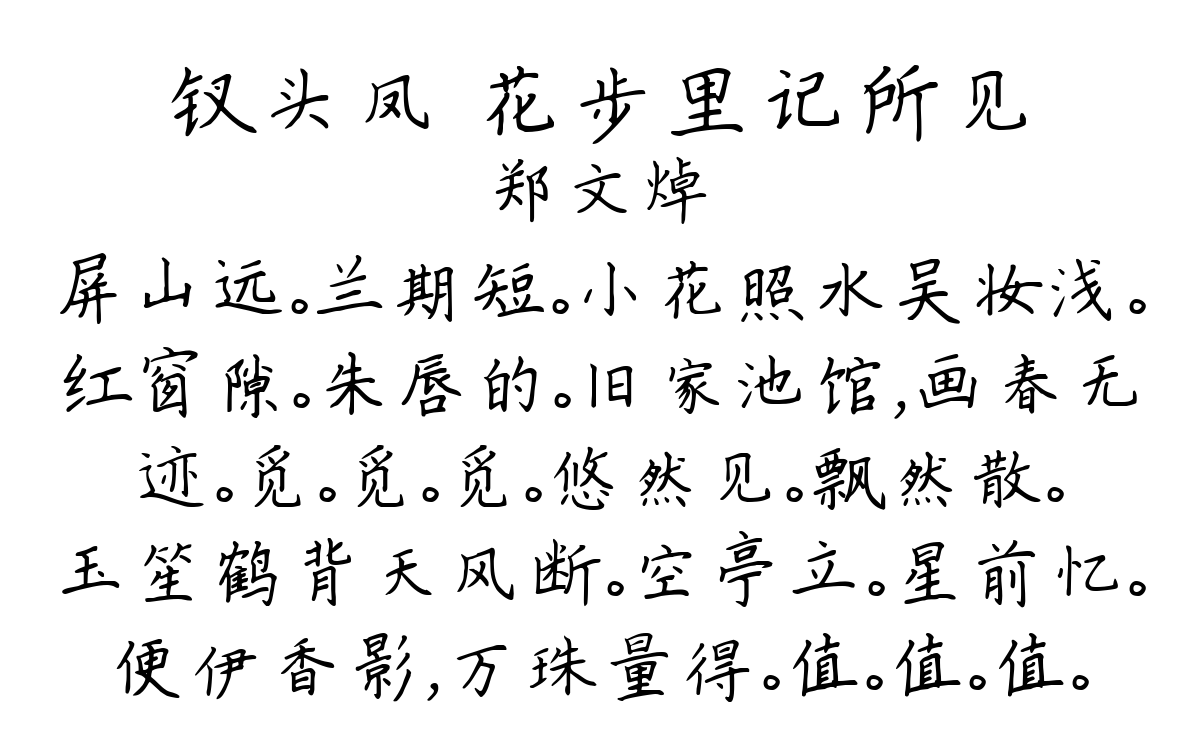 钗头凤 花步里记所见
郑文焯
屏山远。兰期短。小花照水吴妆浅。
红窗隙。朱唇的。旧家池馆,画春无
迹。觅。觅。觅。悠然见。飘然散。
玉笙鹤背天风断。空亭立。星前忆。
便伊香影,万珠量得。值。值。值。